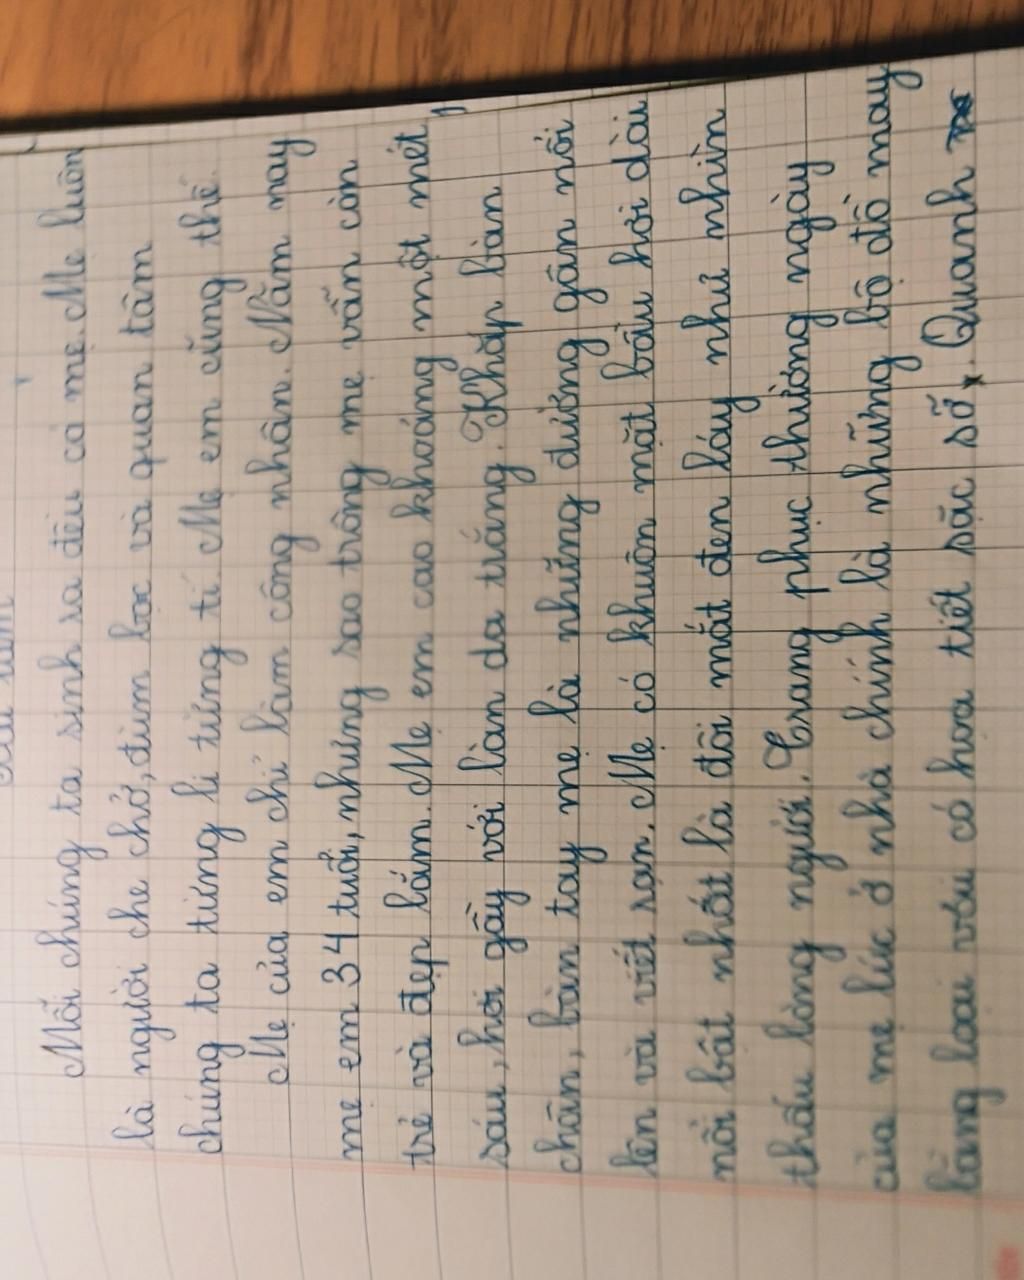 Mỗi chúng ta sinh ra đều có mẹ. Mẹ luôn
là người che chở, đùm bọc và quan tâm
chúng ta từng li từng tí. Mẹ em cũng thế.
Mẹ của em chỉ làm công nhân. Năm nay
mẹ em 34 tuổi, nhưng sao trông mẹ vẫn còn
trẻ và đẹp lắm. Mẹ em cao khoảng một mét
sáu, hơi gầy với làn da trắng. Khắp bàn
chân, bàn tay mẹ là những đường gân nổi
lên và viết sạn. Mẹ có khuôn mặt bầu hơi dài
nổi bật nhất là đôi mắt đen láy như nhìn
thấu lòng người. Trang phục thường ngày
của mẹ lúc ở nhà chính là những bộ đồ may
bằng loại vải có họa tiết sặc sỡ. Quanh